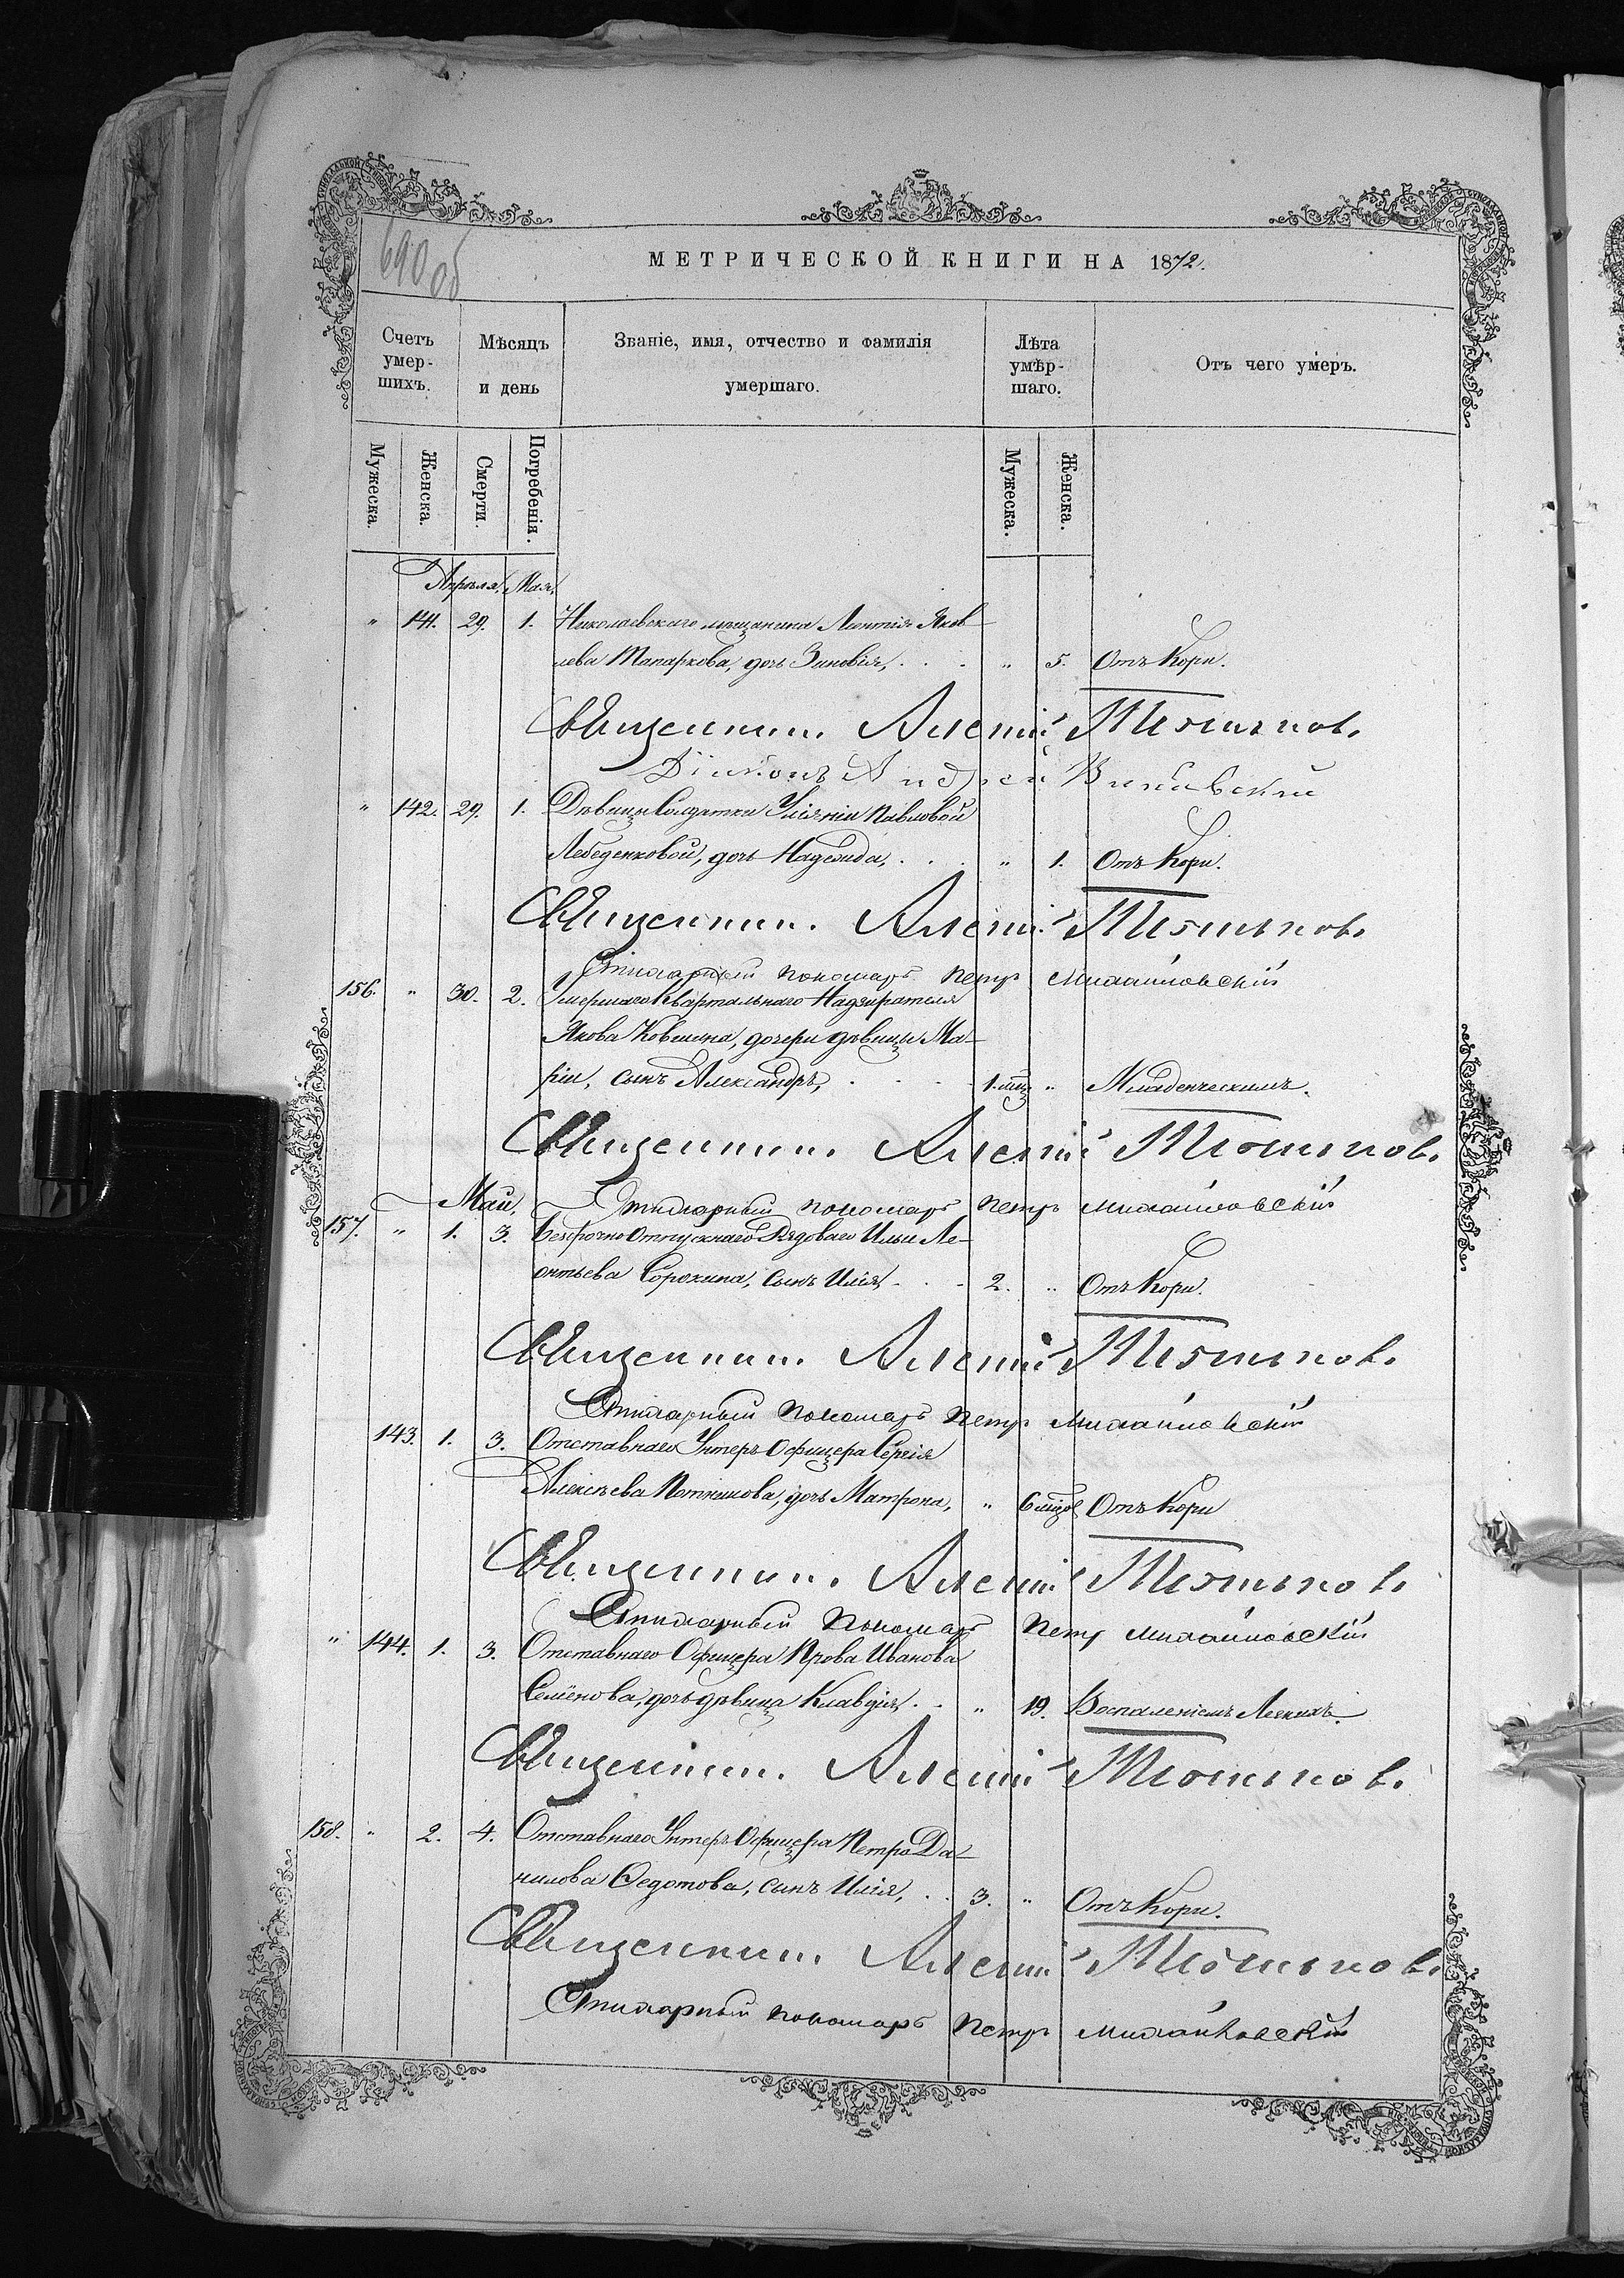 690 об
МЕТРИЧЕСКОЙ КНИГИ НА 1872.
Счетъ умер- шихъ.
Мѣсяцъ и день
Званіе, имя, отчество и фамилія умершаго.
Лѣта умѣр- шаго.
Отъ чего умеръ.
Мужеска. Женска. Смерти. Погребенія. Мужеска. Женска.
Апрѣля. Мая.
" 141. 29. 1. Николаевскаго мещанина Яков-
лева Мапаркова, дочь Зиновія, . . . " 5. Отъ Кори.
Священник. Алексій Тютиков.
Діаконъ Андрей
" 142. 29. 1. Дѣвицы Солдатки Уліяніи Павловой
Лебеденковой, дочь Надежда, . . . " 1. Отъ Кори.
Священник. Алексій Тютиков.
Стихарный пономарь Петр Михайловскій
156. " 30. 2. Умершаго Квартальнаго Надзирателя
Якова Ковшина, дочери дѣвицы Ма-
ріи, сынъ Александръ, . . . 1. мѣц " Младенческимъ.
Священник. Алексій Тютиков.
Май, Стихарный пономарь Петръ Михайловскій
157. " 1. 3. Безсрочно Отпускнаго Рядоваго Ильи Ле-
онтьева Сорокина, сынъ Илія, . . . 2. " Отъ Кори.
Священник. Алексій Тютиков.
Стихарный пономарь Петр Михайловскій
143. 1. 3. Отставнаго Унтеръ Офицера Сергія
Алексѣева дочь Матрона, " 6 мѣцов Отъ Кори
Священник. Алексій Тютиков.
Стихарный Пономарь Петр Михайловскій
" 144. 1. 3. Отставнаго Офицера Прова Иванова
Семёнова, дочь дѣвица Клавдія, . . " 19. Воспаленіемъ Легкихъ.
Священник. Алексій Тютиков.
158. " 2. 4. Отставнаго Унтеръ Офицера Петра Да-
нилова Ѳедотова, сынъ Илія, . . 3. " Отъ Кори.
Священник. Алексій Тютиков.
Стихарный пономарь Петр Михайловскій